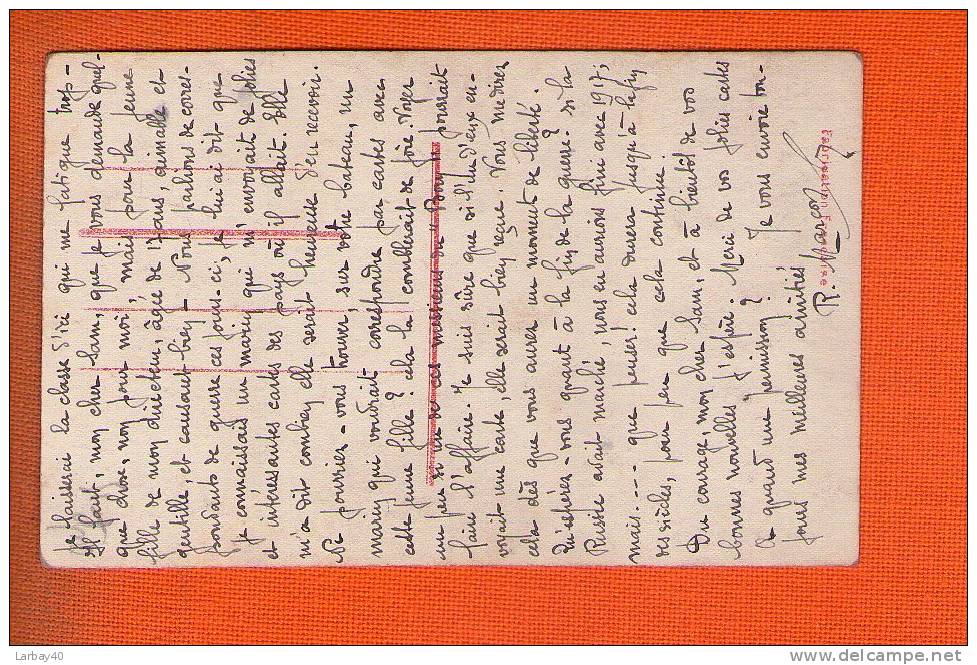 Je laisserai la classe d'ici qui me fatigue trop-
Il faut, mon cher Sam, que je vous demande quel-
que chose, non pour moi, mais pour la jeune
fille de mon directeur, âgée de ans, aimable et
gentille, et causant bien - Nous parlions de corres-
pondants de guerre ces jours-ci, je lui ai dit que
je connaissais un marin qui m'envoyait de jolies
et intéressantes cartes des pays où il allait. Elle
m'a dit combien elle serait heureuse d'en recevoir.
Ne pourriez-vous trouver, sur votre bateau, un
marin qui voudrait correspondre par cartes avec
cette jeune fille? cela la comblerait de joie. Voyez
un peu si un de ces messieurs du "Bory" pourrait
faire l'affaire. Je suis sûre que si l'un d'eux en-
voyait une carte, elle serait bien reçue. Vous me direz
cela dès que vous aurez un moment de liberté.
Qu'espérez-vous quant à la fin de la guerre? Si la
Russie avait marché, nous en aurions fini avec 1917;
mais... que penser! cela durera jusqu'à la fin
des siècles, pour peu que cela continue.
Du courage, mon cher Sam, et à bientôt de vos
bonnes nouvelles j'espère. Merci de vos jolies cartes
A quand une permission? Je vous envoie tou-
jours mes meilleures amitiés
R. Marçon
Larbay40
www.delcampe.net